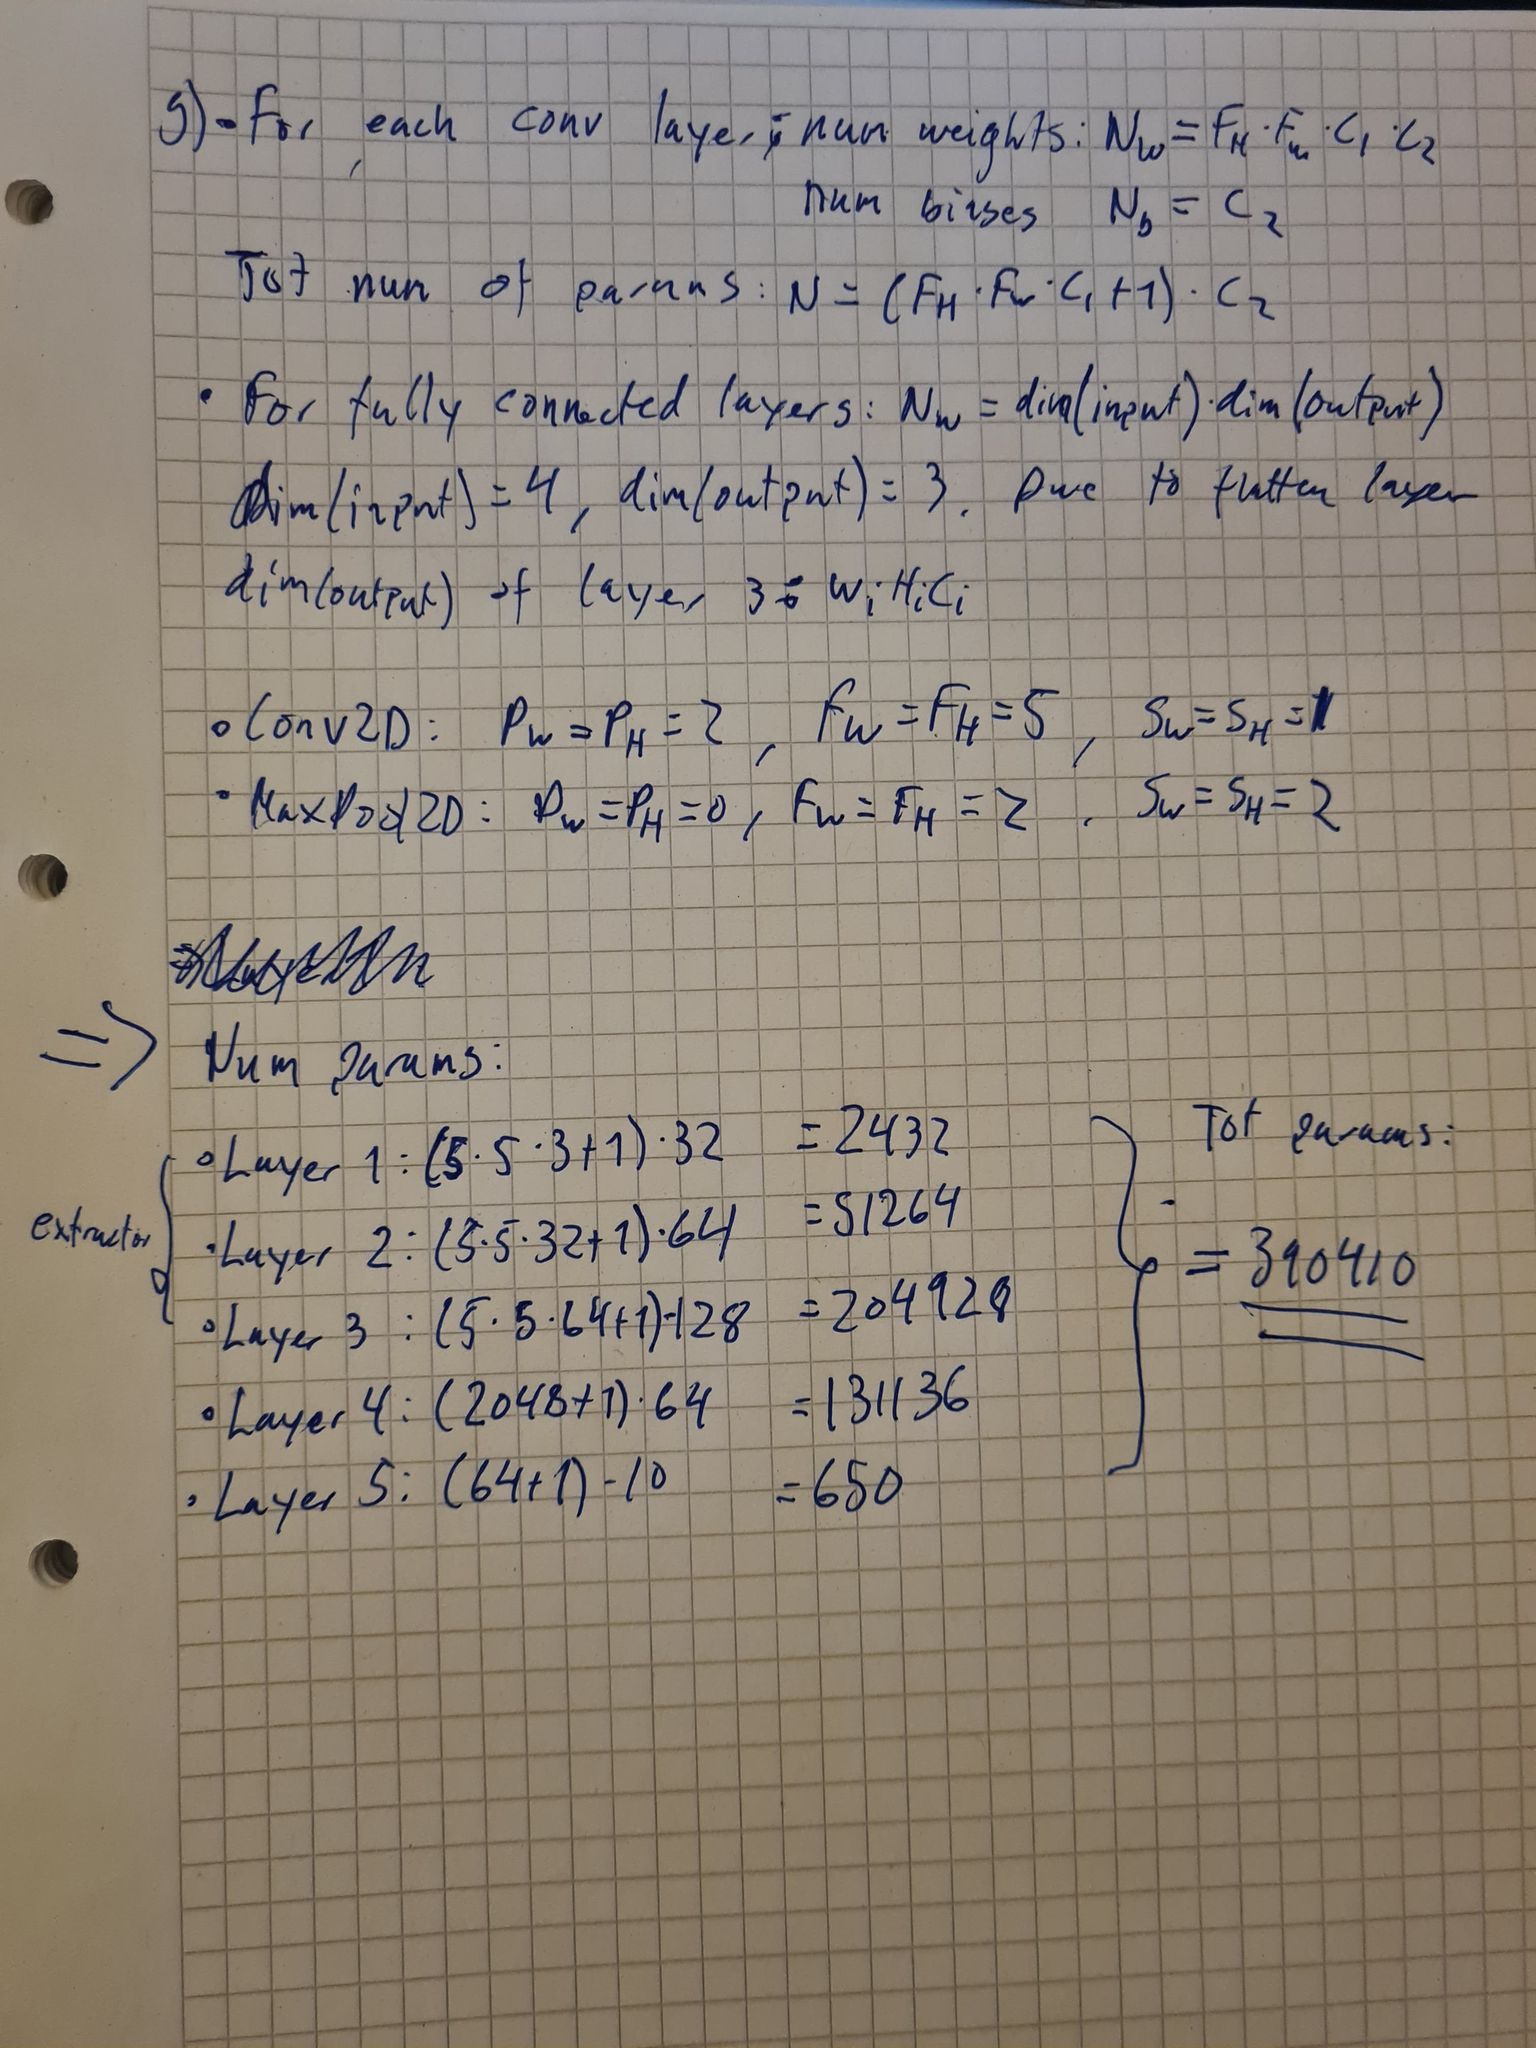 g) - For each conv layer: num weights: N_w = F_H · F_w · C_1 · C_2
num biases N_b = C_2
Tot num of params: N = (F_H · F_w · C_1 + 1) · C_2
• For fully connected layers: N_w = dim(input) · dim(output)
dim(input) = 4, dim(output) = 3. Due to flatten layer
dim(output) of layer 3: W_i · H_i C_i
• Conv2D: P_w = P_H = 2, F_w = F_H = 5, S_w = S_H = 1
• MaxPool2D: P_w = P_H = 0, F_w = F_H = 2, S_w = S_H = 2
=> Num params:
extractor
• Layer 1: (5 · 5 · 3 + 1) · 32 = 2432
• Layer 2: (5 · 5 · 32 + 1) · 64 = 51264
• Layer 3: (5 · 5 · 64 + 1) · 128 = 204928
• Layer 4: (2048 + 1) · 64 = 131136
• Layer 5: (64 + 1) · 10 = 650
Tot params:
= 390410